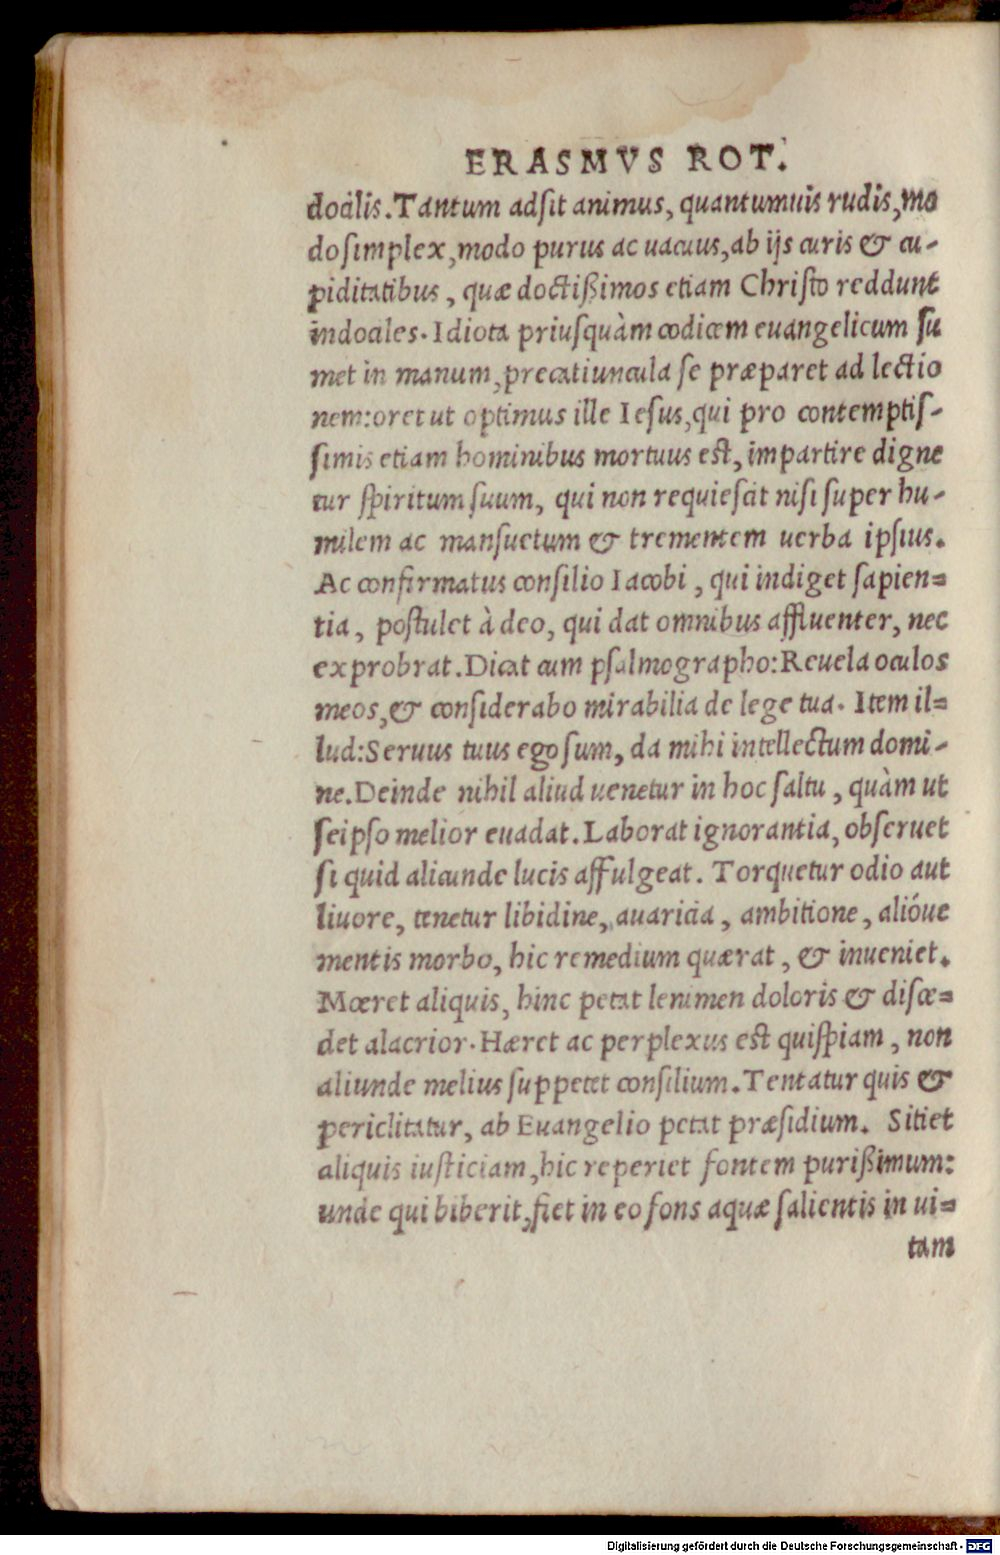 ERASMVS ROT.
docilis. Tantum adsit animus, quantumuis rudis, mo
do simplex, modo purus ac uacuus, ab ijs curis & cu-
piditatibus, quæ doctißimos etiam Christo reddunt
indociles. Idiota priusquàm codicem euangelicum su
met in manum, precatiuncula se præparet ad lectio
nem: oret ut optimus ille Iesus, qui pro contemptis-
simis etiam hominibus mortuus est, impartire digne
tur spiritum suum, qui non requiescit nisi super hu-
milem ac mansuetum & trementem uerba ipsius.
Ac confirmatus consilio Iacobi, qui indiget sapien=
tia, postulet à deo, qui dat omnibus affluenter, nec
exprobrat. Dicat cum psalmographo: Reuela oculos
meos, & considerabo mirabilia de lege tua. Item il=
lud: Seruus tuus ego sum, da mihi intellectum domi-
ne. Deinde nihil aliud uenetur in hoc saltu, quàm ut
seipso melior euadat. Laborat ignorantia, obseruet
si quid alicunde lucis affulgeat. Torquetur odio aut
liuore, tenetur libidine, auaricia, ambitione, alióue
mentis morbo, hic remedium quærat, & inueniet.
Mœret aliquis, hinc petat lenimen doloris & discæ=
det alacrior. Hæret ac perplexus est quispiam, non
aliunde melius suppetet consilium. Tentatur quis &
periclitatur, ab Euangelio petat præsidium. Sitiet
aliquis iusticiam, hic reperiet fontem purißimum:
unde qui biberit, fiet in eo fons aquæ salientis in ui=
tam
Digitalisierung gefördert durch die Deutsche Forschungsgemeinschaft - DFG